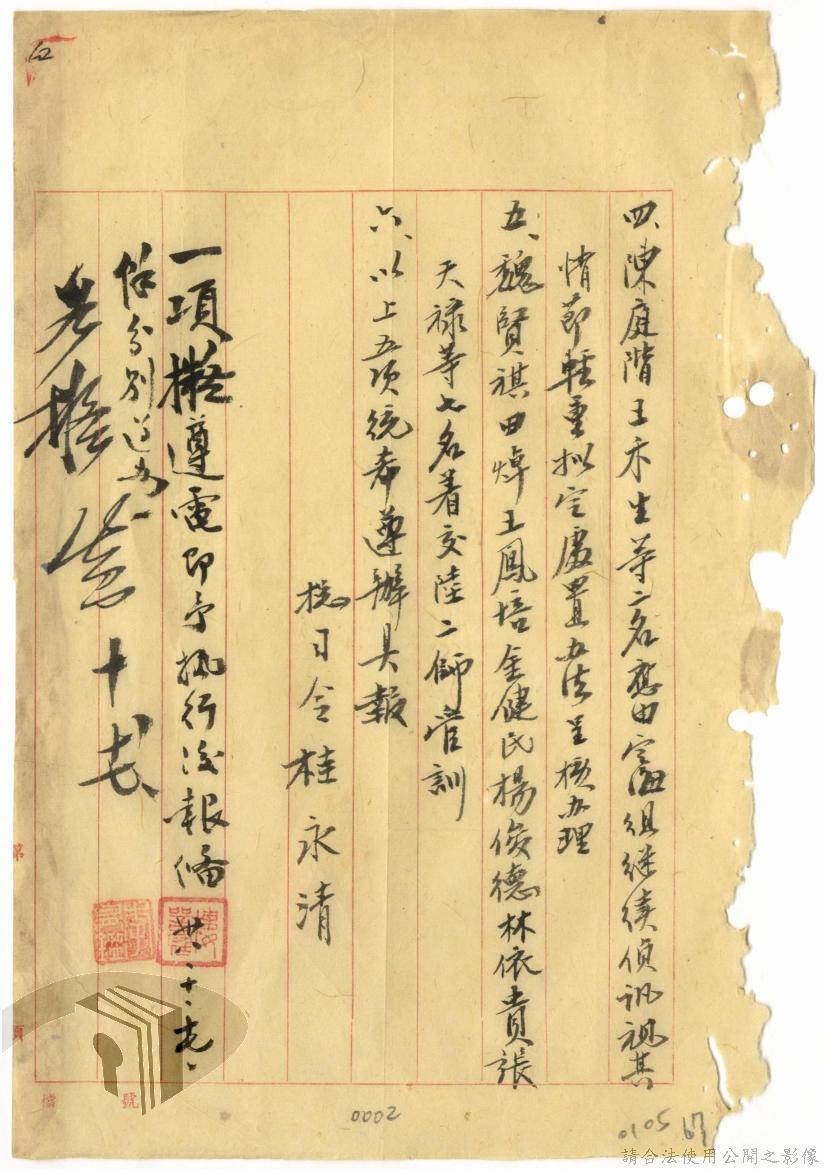 四、陳庭階王禾生等二名應由審組继续偵訊視其
情節輕重拟定處置办法呈核办理
五、魏賢祺田焯王鳳培金健民楊俊德林依貴張
天祿等七名着交陸二師管訓
六、以上五項統希遵辦具報
总司令桂永清
一項擬遵電即予執行後報備
餘分別遵办
卅八、十、
第
頁
檔
號
0002
0105
67
請合法使用公開之影像